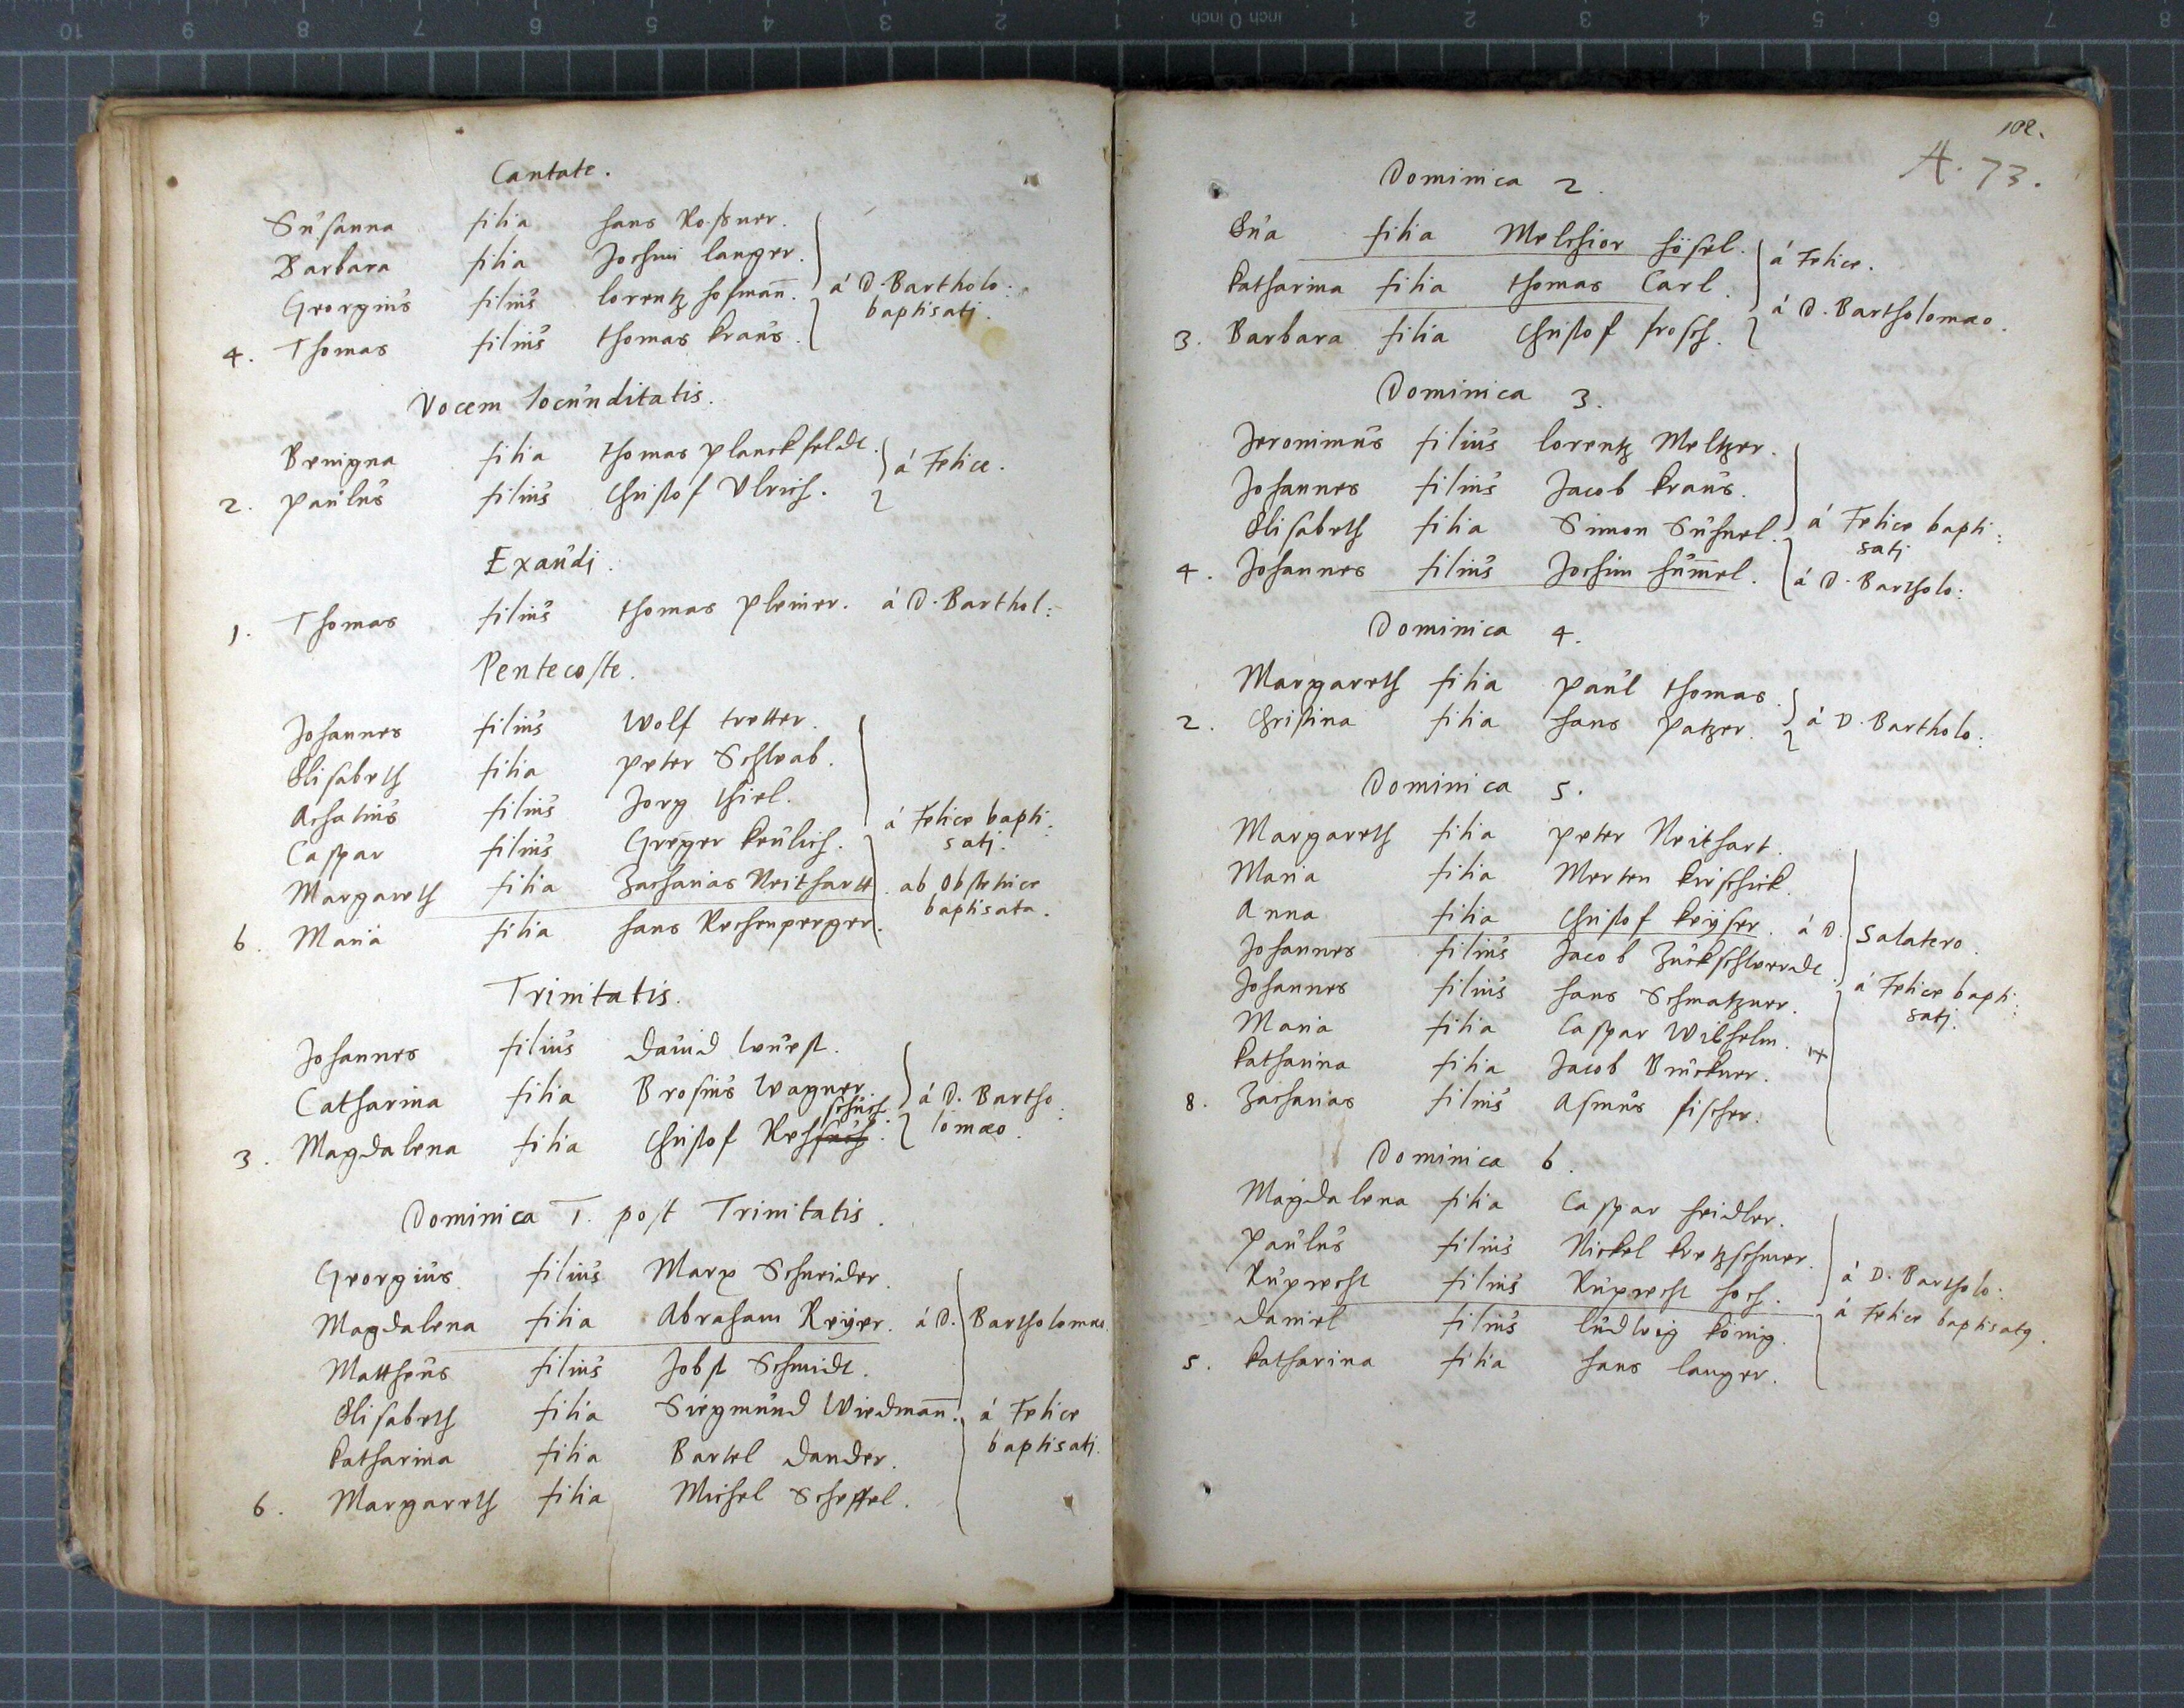 Cantate.
Susanna filia hans Roßner.
Barbara filia Jochim langer.
Georgius filius lorentz hofman̄. á D. Bartholo:
baptisatj.
4. Thomas filius thomas kraus.
Vocem Iocunditatis.
Benigna filia thomas planckfeldt. á Felice.
2. paulus filius Christof Ulrich.
Exaudj.
1. Thomas filius thomas pleiner. á D. Barthol:
Pentecoste.
Johannes filius Wolf tretter.
Elisabeth filia peter Schwab.
Achatius filius Jorg thiel.
Caspar filius Greger keulich. á Felice bapti:
satj.
Margareth filia Zacharias Neithartt. ab Obstetrice
baptisata.
6. Maria filia hans Rechenperger.
Trinitatis.
Johannes filius dauid wurst.
Catharina filia Brosius Wagner. á D. Bartho:
schuch
3. Magdalena filia Christof Reh lomæo.
Dominica 1. post Trinitatis.
Georgius filius Marx Schneider.
Magdalena filia Abraham Reÿer. á D. Bartholomæo.
Mattheus filius Jobst Schmidt.
Elisabeth filia Siegmund Wiedman̄. á Felice
baptisatj.
katharina filia Bartel dander.
6. Margareth filia Michel Scheffel.
102.
A. 73.
Dominica 2.
Eua filia Melchior hösel. á Felice.
katharina filia thomas Carl. á D. Bartholomæo.
3. Barbara filia Christof frosch.
Dominica 3.
Jeronimus filius lorentz Meltzer.
Johannes filius Jacob kraus.
Elisabeth filia Simon Suhnel. á Felice bapti:
satj
4. Johannes filius Jochim hum̄el. á D. Bartholo:
Dominica 4.
Margareth filia paul thomas.
2. Christina filia hans patzer. á D. Bartholo:
Dominica 5.
Margareth filia peter Neithart.
Maria filia Merten kirschick.
Anna filia Christof keÿser. á D. Salatero.
Johannes filius Jacob Zuckschwerdt.
Johannes filius hans Schmatzner. á Felice bapti:
satj.
Maria filia Caspar Wilhelm.
katharina filia Jacob Bruckner.
8. Zacharias filius Asmus fischer.
Dominica 6.
Magdalena filia Caspar heidler.
paulus filius Nickel kretzschmer.
Ruprecht filius Ruprecht hoch. á D. Bartholo:
daniel filius ludwig könig. á Felice baptisatj.
5. katharina filia hans langer.